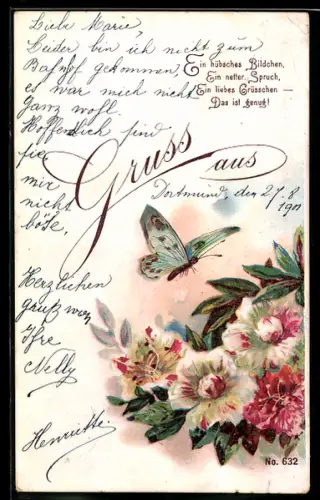 Liebe Marie,
Leider bin ich nicht zum
Bahnhof gekommen,
es war mich nicht
Ganz wohl.
Hoffentlich sind
sie
mir
nicht
böse,
Ein hübsches Bildchen,
Ein netter Spruch,
Ein liebes Grüsschen –
Das ist genug!
Gruss aus
Dortmund, den 27.8
1901
Herzlichen
gruß von
Ihre
Nelly
Henriette.
No. 632